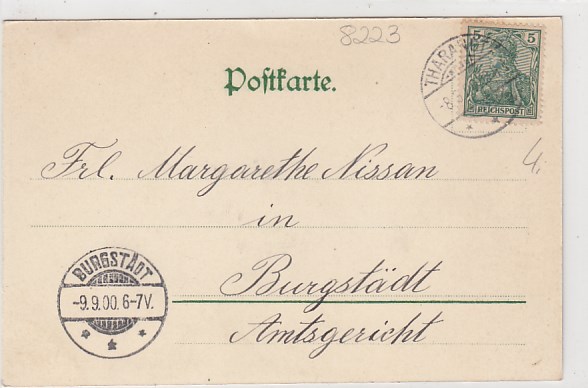 8223
5 5
REICHSPOST
THARANDT
-8.
Postkarte.
4.
Frl. Margarethe Nissan
in
Burgstädt
Amtsgericht
BURGSTÄDT
-9.9.00.6-7V.